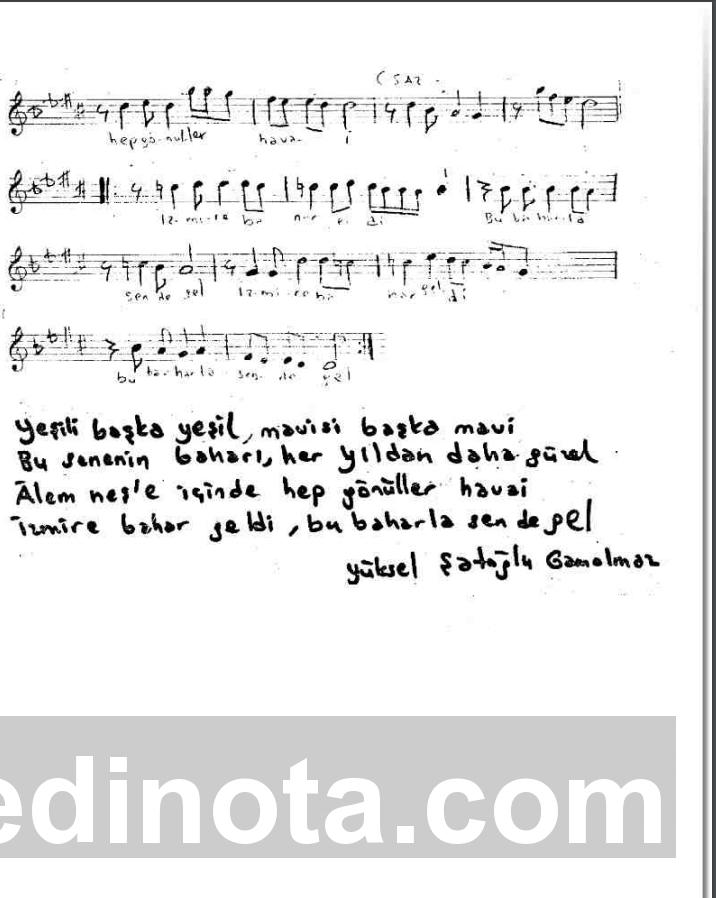 (SAZ -
hep gö-nül-ler hava- i
İz-mi-re ba har gel di Bu ba-har-la
sen de gel İz-mi-re ba har gel di
bu ba-har-la sen- de gel
Yeşili başka yeşil, mavisi başka mavi
Bu senenin baharı, her yıldan daha güzel
Âlem neş'e içinde hep gönüller havai
İzmire bahar geldi, bu baharla sen de gel
Yüksel Şatoğlu Gamolmaz
edinota.com